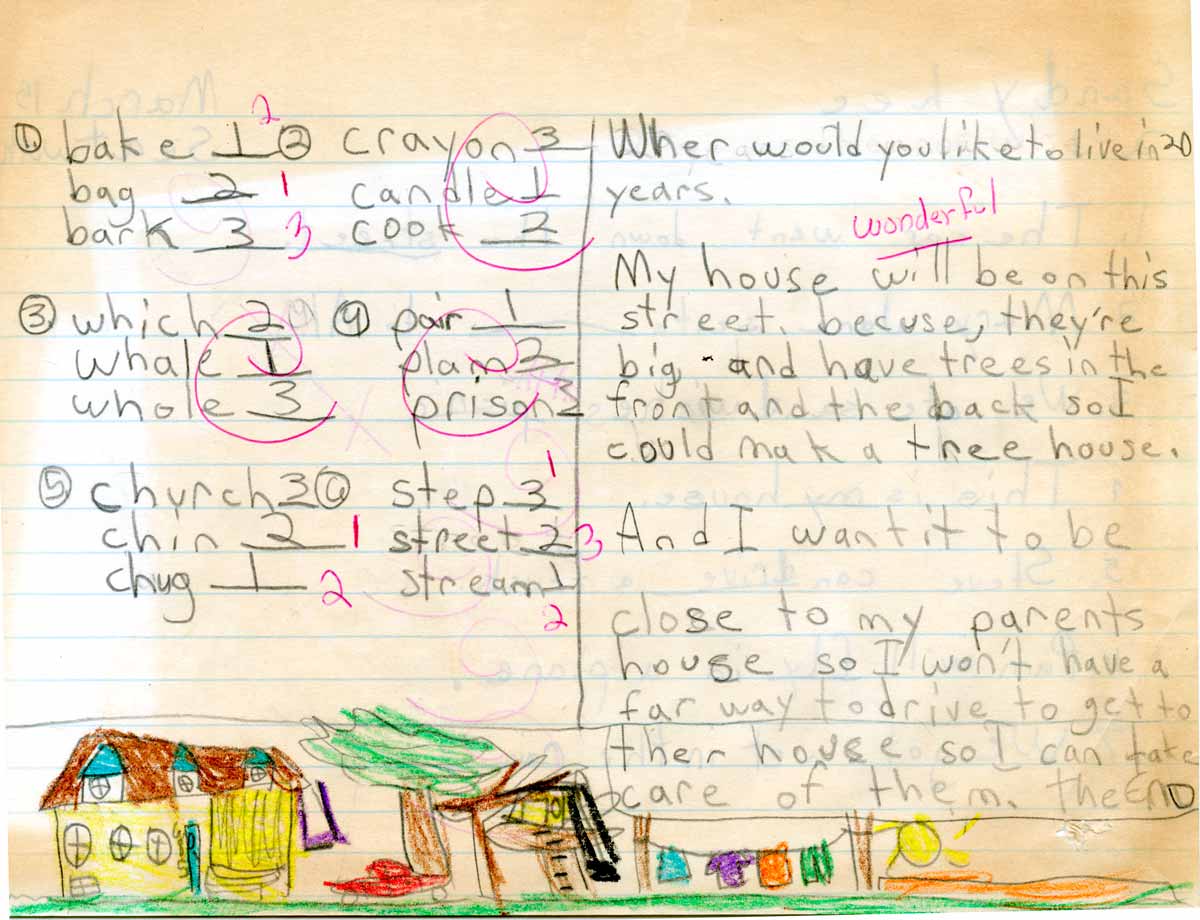 ① bake 1 2 ② crayon 3
bag 2 1 candle 1
bark 3 3 cook 2
③ which 2 ④ pair 1
whale 1 plan 2
whole 3 prison 3
⑤ church 3 ⑥ step 3 1
chin 2 1 street 2 3
chug 1 2 stream 1
2
Wher would you like to live in 20
years.
wonderful
My house will be on this
street. becuse, they're
big and have trees in the
front and the back so I
could mak a tree house.
And I want it to be
close to my parents
house so I won't have a
far way to drive to get to
ther house so I can take
care of them. The END